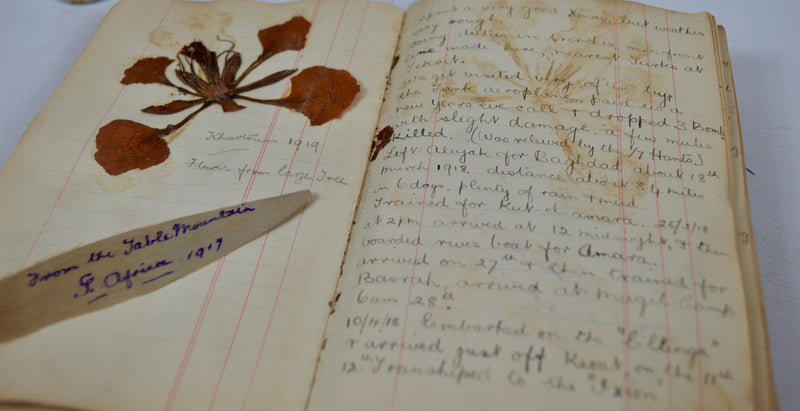 Khartoum 1919
Flower from large Tree
From the Table Mountain
S. Africa 1917
spent a very good Xmas but weather
very rough.
Doing duties in trenches, our front
line made here, nearest Turks at
Tekrit.
We get visited very often by
the Turk aeroplanes, paid us a
new years eve call & dropped 3 Bombs
with slight damage, a few mules
killed. (Was relieved by the 1/7 Hants)
Left Alujah for Baghdad about 18th
march 1918 distance about 84 miles
in 6 days, plenty of rain & mud.
Trained for Kut-el-amara. 25/3/18
at 2pm arrived at 12 midnight, & then
boarded river boat for Amara.
arrived on 27th & then trained for
Basrah, arrived at magil Camp
6am 28th
10/4/18 Embarked on the "Ellinga"
& arrived just off on the 11th
12th Transhiped to the "Ixion"